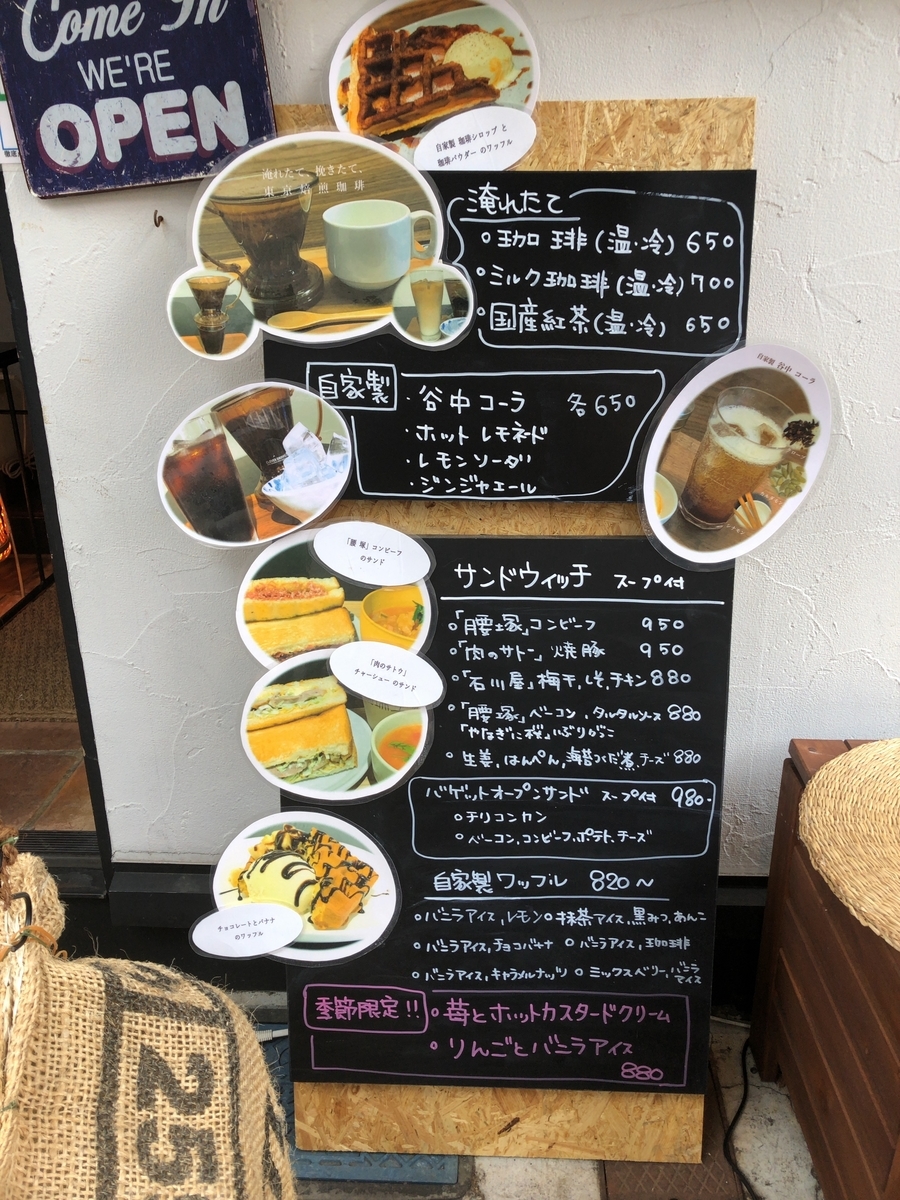 Come In
WE'RE
OPEN
自家製 珈琲シロップ と
珈琲パウダー のワッフル
淹れたて、挽きたて、
東京焙煎珈琲
淹れたて
○珈琲(温・冷) 650
・ミルク珈琲(温・冷) 700
・国産紅茶(温・冷) 650
自家製
・谷中コーラ 各650
・ホットレモネード
・レモンソーダ
・ジンジャエール
自家製 谷中 コーラ
「腰塚」コンビーフ
のサンド
サンドウィッチ スープ付
○「腰塚」コンビーフ 950
○「肉のサトー」焼豚 950
○「石川屋」梅干,しそ,チキン 880
○「腰塚」ベーコン,タルタルソース 880
「やなぎに桜」いぶりがっこ
○生姜,はんぺん,海苔つくだ煮,チーズ 880
「肉のサトウ」
チャーシュー のサンド
バゲットオープンサンド スープ付 980-
○チリコンカン
○ベーコン,コンビーフ,ポテト,チーズ
自家製ワッフル 820〜
○バニラアイス,レモン ○抹茶アイス,黒みつ,あんこ
○バニラアイス,チョコバナナ ○バニラアイス,珈琲
○バニラアイス,キャラメルナッツ ○ミックスベリー,バニラアイス
チョコレートとバナナ
のワッフル
季節限定!! ○苺とホットカスタードクリーム
○りんごとバニラアイス
880
25